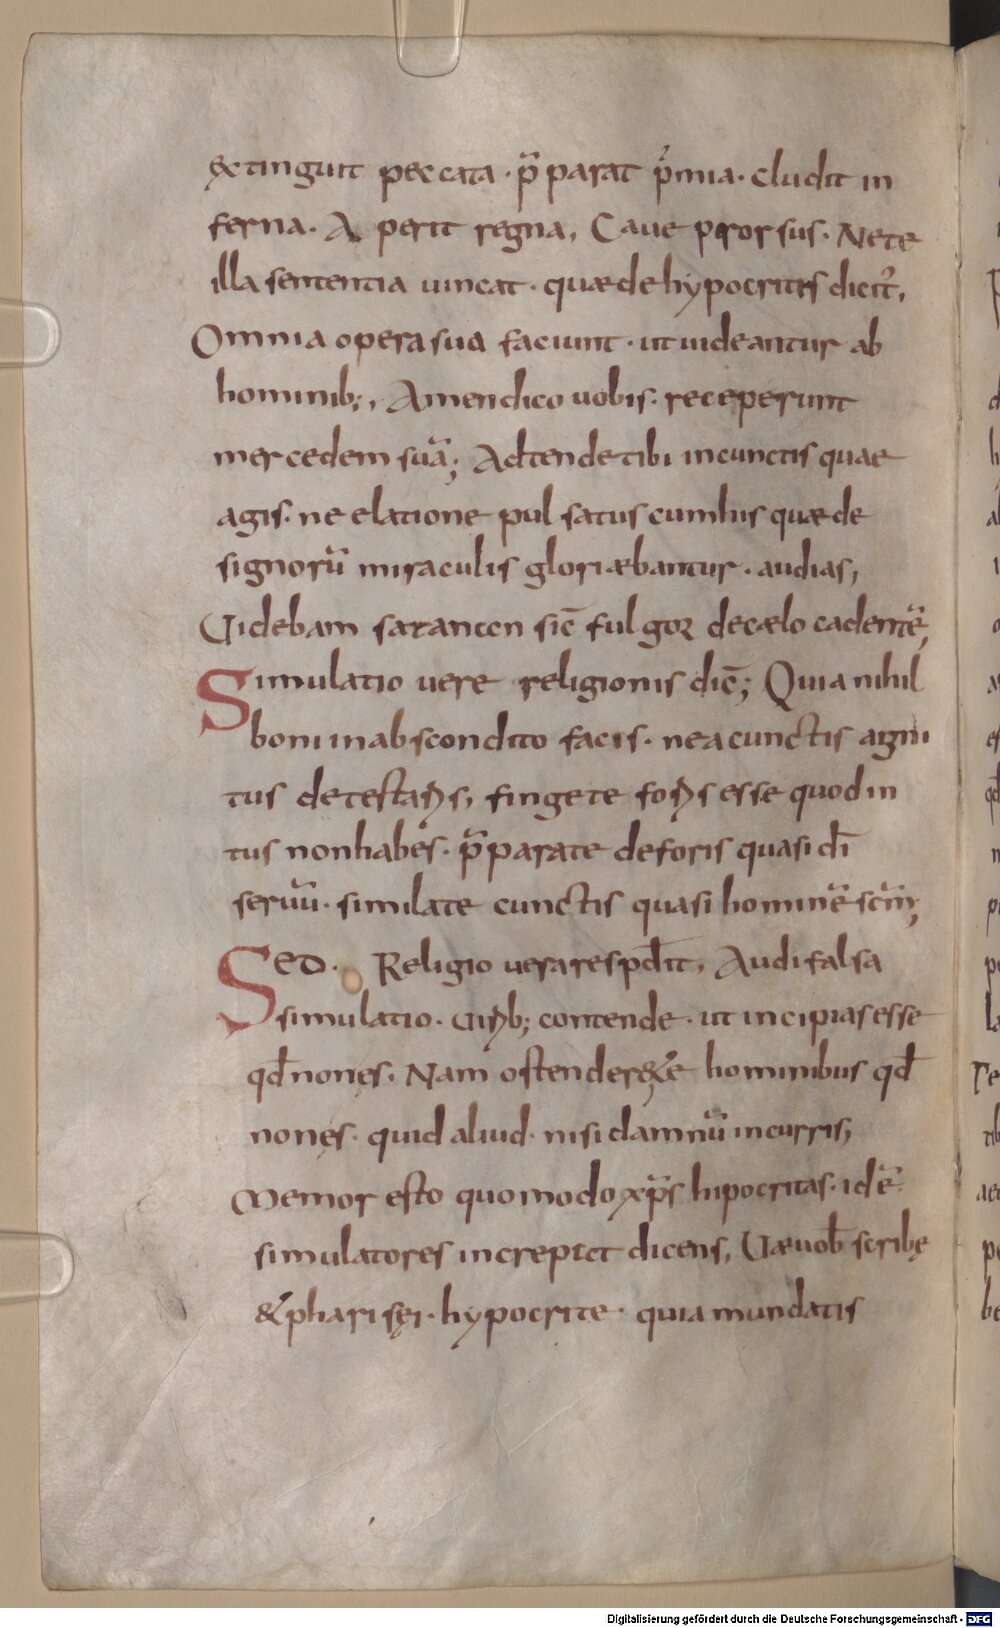 extinguit peccata · p̄parat p̄mia · cludit in
ferna · Aperit regna, Caue prorsus · Nete
illa sententia uincat · quae de hypocritis dicit᷑,
Omnia opera sua faciunt · ut uideantur ab
hominib;, Amen dico uobis · receperunt
mercedem suā; Adtende tibi in cunctis quae
agis · ne elatione pulsatus cum his quae de
signorū miraculis gloriaebantur · audias,
Uidebam satanan sic̄ fulgor de caelo cadentē,
Simulatio vere religionis dic̄; Quia nihil
boni in abscondito facis · ne a cunctis agni
tus detestaris, finge te foris esse quod in
tus non habes · p̄para te deforis quasi dī
seruū · simila te cunctis quasi hominē sc̄m;
Sed · Religio vera respōdit, Audi falsa
simulatio · Uirib; contende · ut incipias esse
qd̄ non es · Nam ostendere te hominibus qd̄
non es · quid aliud · nisi damnū incurris,
Memor esto quomodo xp̄s hipocritas · id ē
simulatores increpet dicens, Uae uob̄ scribę
& pharisęi · hypocrite · quia mundatis
Digitalisierung gefördert durch die Deutsche Forschungsgemeinschaft - DFG